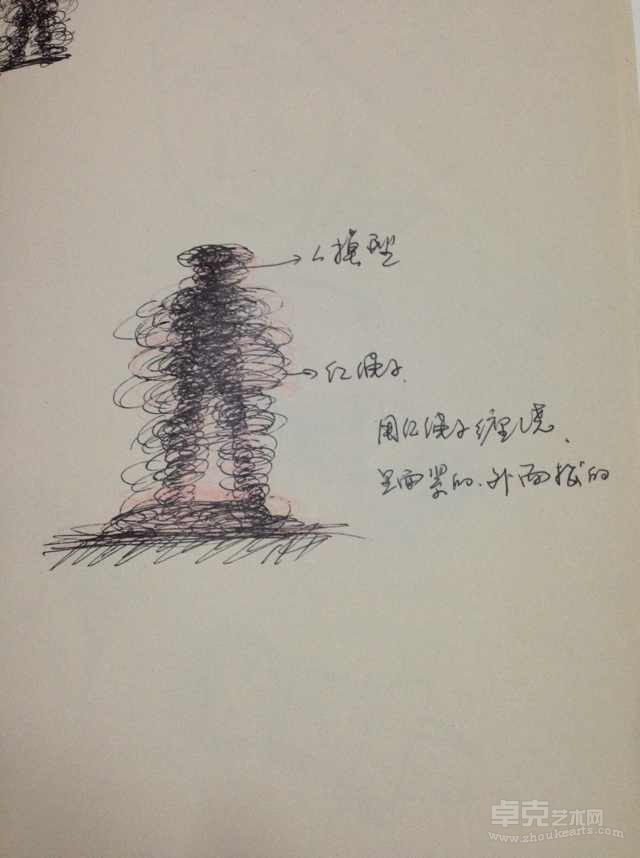 人模型
红绳子.
用红绳子缠绕、
里面紧的、外面松的
卓克艺术网
www.zhoukearts.com